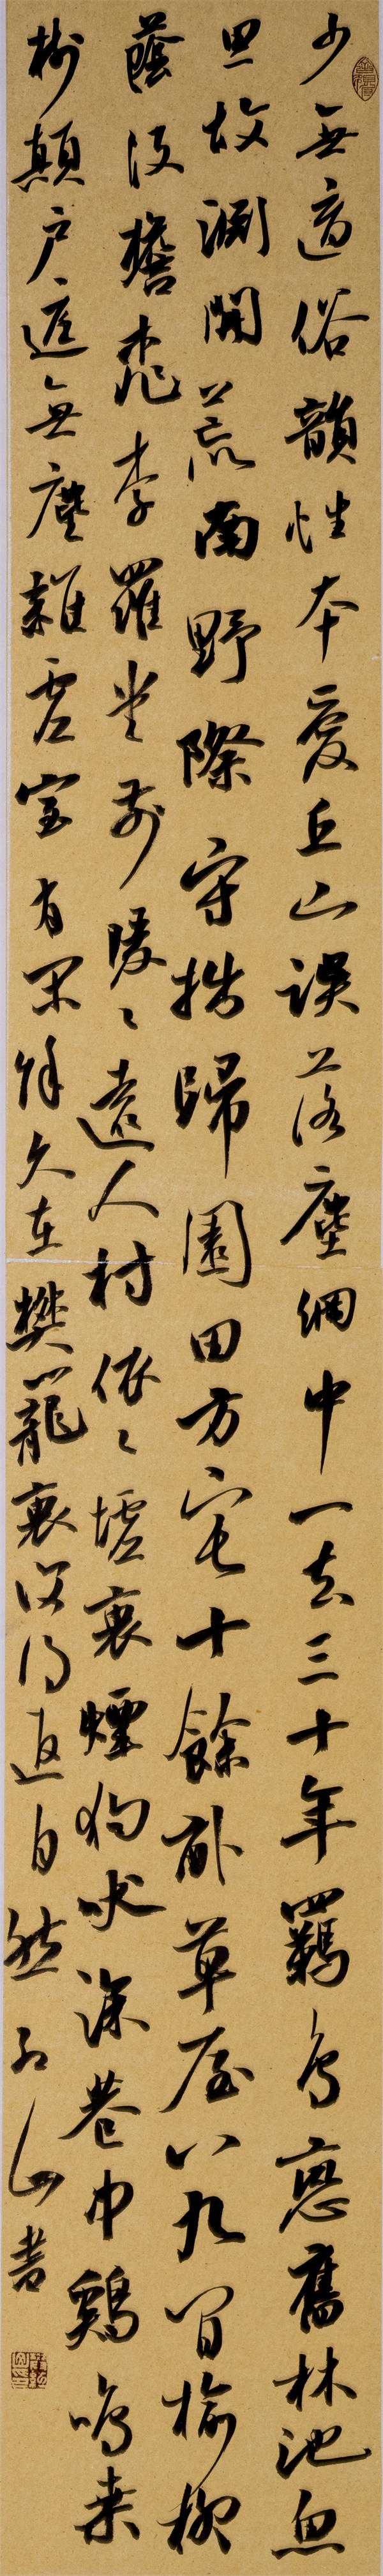 少無適俗韻性本愛丘山誤落塵網中一去三十年羈鳥戀舊林池魚
思故淵開荒南野際守拙歸園田方宅十餘畝草屋八九間榆柳
蔭後檐桃李羅堂前曖〻遠人村依〻墟裏煙狗吠深巷中鷄鳴桑
樹顛戶庭無塵雜虛室有閑餘久在樊籠裏復得返自然 書